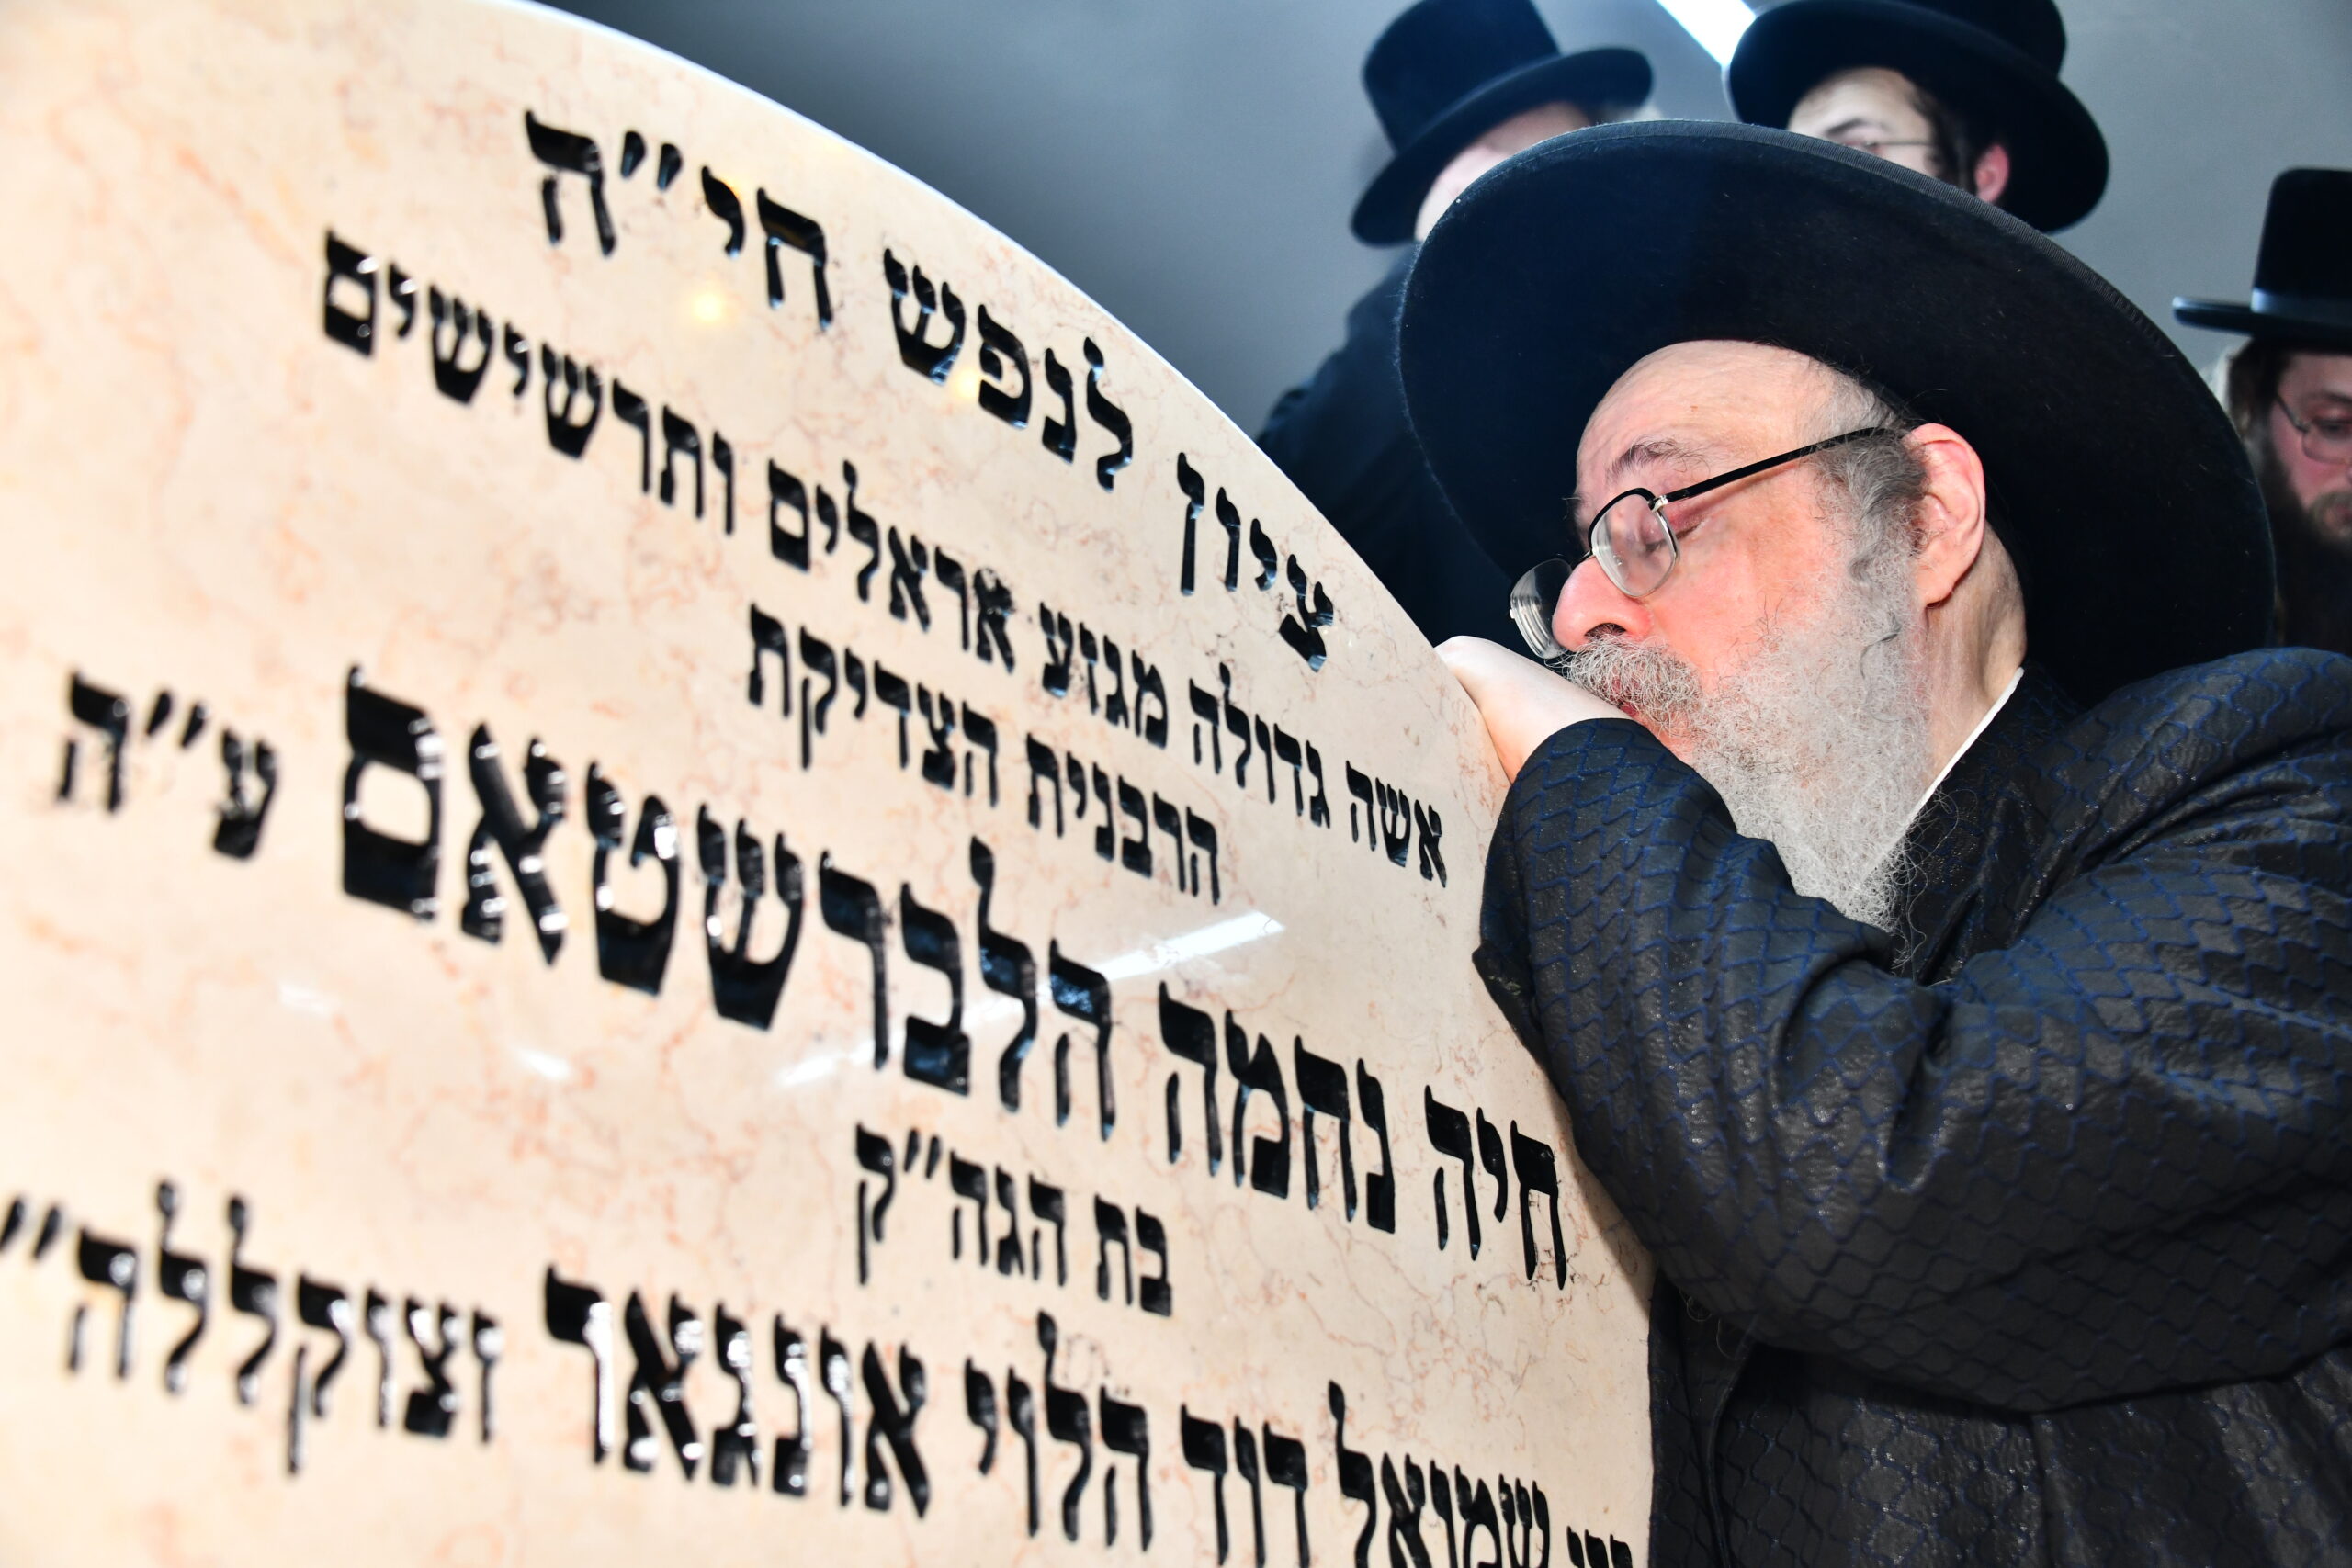 ציון לנפש חי״ה
אשה גדולה מגזע אראלים ותרשישים
הרבנית הצדיקת
חיה נחמה הלברשטאם ע״ה
בת הגה״ק
רבי שמואל דוד הלוי אונגאר זצוקללה״